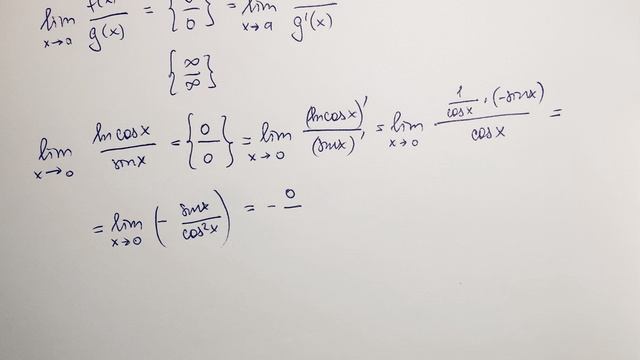 lim x→a f(x)/g(x) = {0/0} = lim x→a /g'(x)
{∞/∞}
lim x→0 ln cosx/sinx = {0/0} = lim x→0 (ln cosx)'/(sinx)' = lim x→0 1/cosx · (-sinx)/cosx =
= lim x→0 (- sinx/cos²x) = - 0/